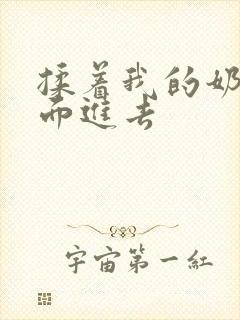 揉着我的奶
而進去
宇宙第一紅